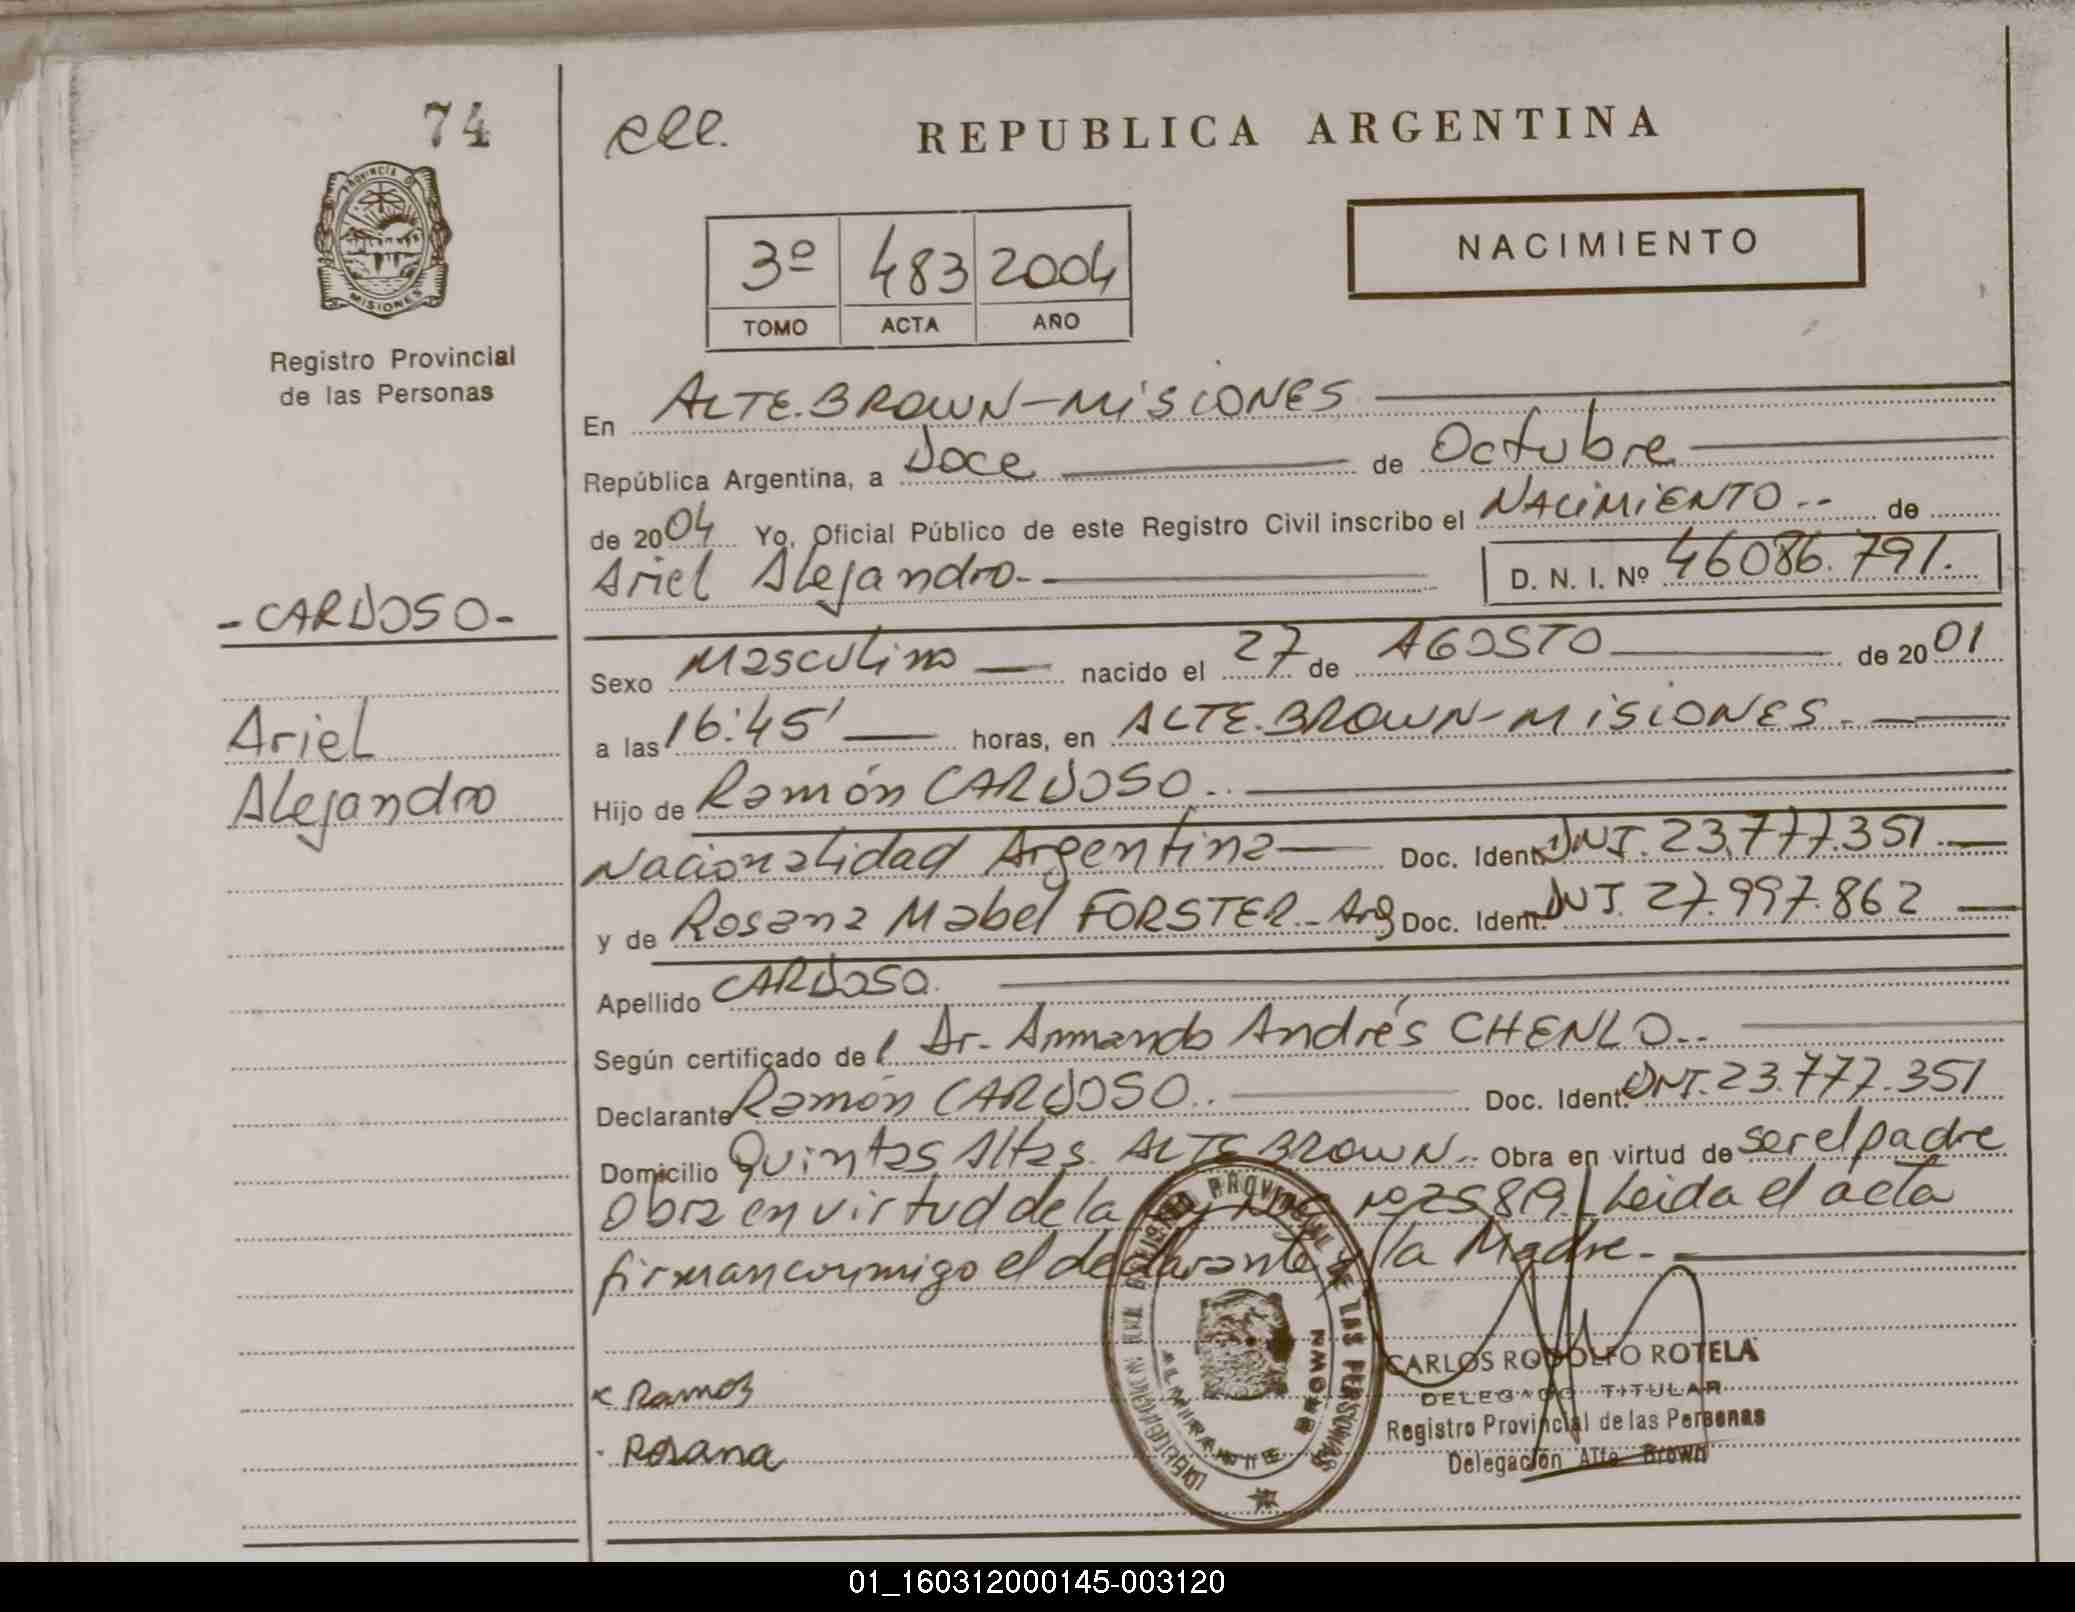 74
Rll.
REPUBLICA ARGENTINA
PROVINCIA DE
MISIONES
Registro Provincial
de las Personas
3º 483 2004
TOMO ACTA AÑO
NACIMIENTO
En ALTE. BROWN-MISIONES
República Argentina, a Doce de Octubre
de 2004 Yo, Oficial Público de este Registro Civil inscribo el NACIMIENTO.. de
Ariel Alejandro.- D. N. I. Nº 46086.791.
-CARDOSO-
Ariel
Alejandro
Sexo Masculino nacido el 27 de AGOSTO de 2001
a las 16:45' horas, en ALTE.BROWN-MISIONES.
Hijo de Ramón CARDOSO..
Nacionalidad Argentina Doc. Ident. DNI. 23.777.351.
y de Rosana Mabel FORSTER.. Arg Doc. Ident. DNI. 27.997.862
Apellido CARDOSO.
Según certificado del Dr. Armando Andrés CHENLO..
Declarante Ramón CARDOSO.. Doc. Ident. DNI. 23.777.351
Domicilio Quintas Altas. ALTE BROWN.. Obra en virtud de ser el padre
Obra en virtud de la nº 25819. Leida el acta
firman conmigo el declarante y la Madre.-
x Ramon
. Rosana
REGISTRO PROVINCIAL DE LAS PERSONAS
ALMIRANTE BROWN
CARLOS RODOLFO ROTELA
DELEGADO TITULAR
Registro Provincial de las Personas
Delegación Alte. Brown
01_160312000145-003120